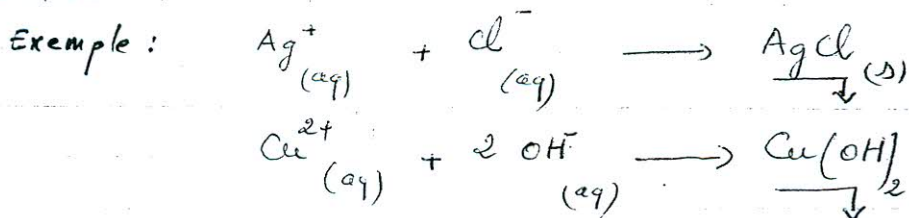 Exemple : Ag⁺(aq) + Cl⁻(aq) ⟶ AgCl(s) ↓
Cu²⁺(aq) + 2 OH⁻(aq) ⟶ Cu(OH)₂ ↓